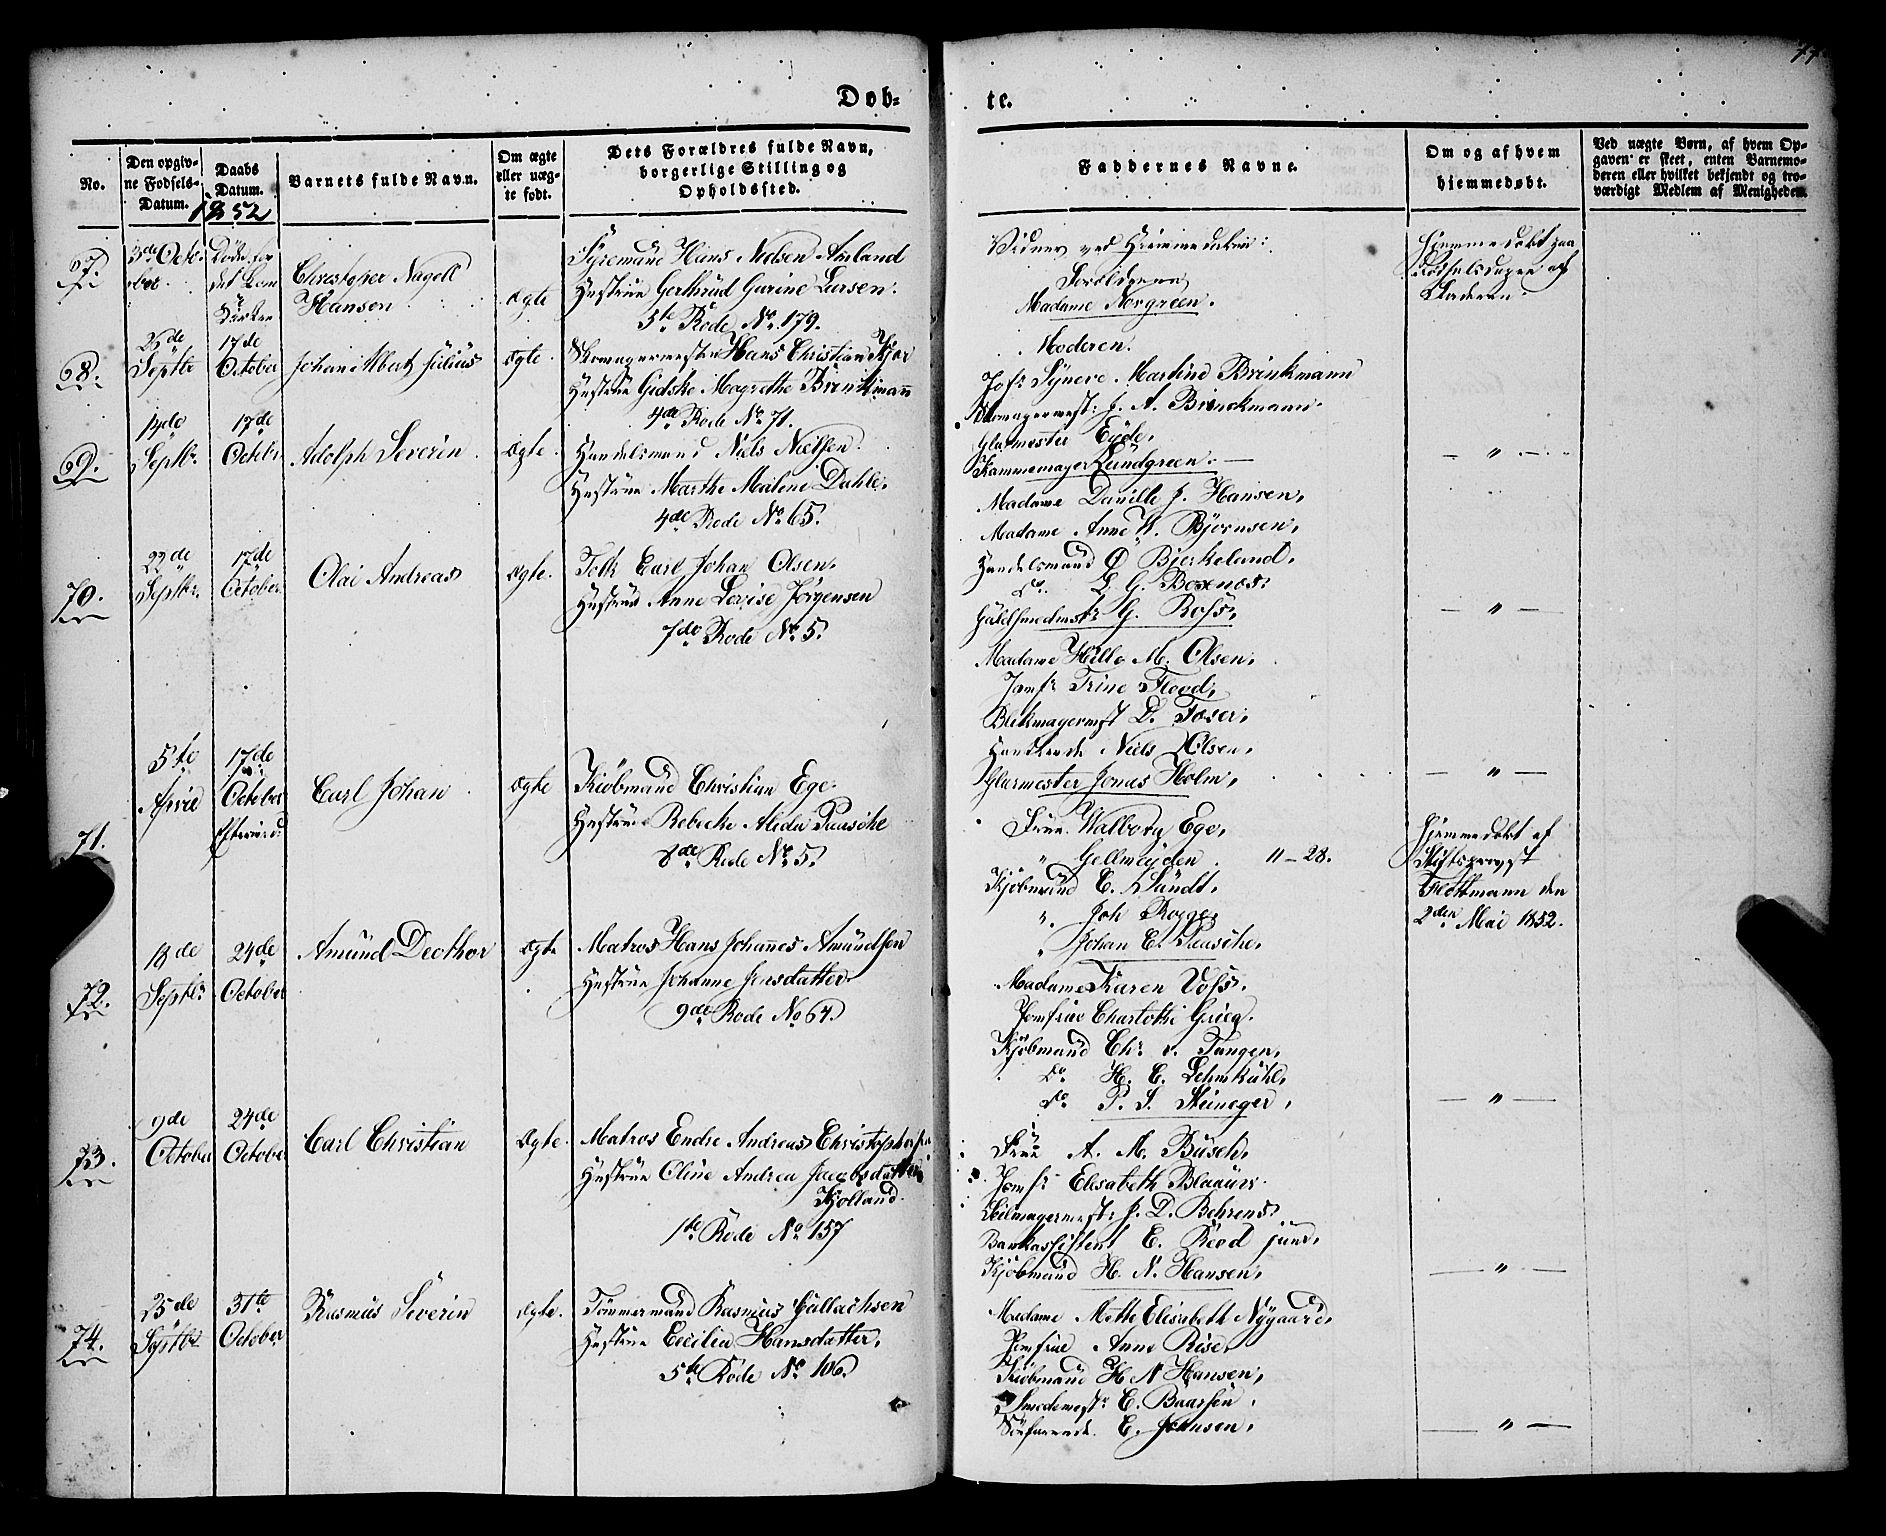 77
Døb=
te.
No.
Den opgiv-
ne Fødsels-
Datum.
Daabs
Datum.
1852
Barnets fulde Navn.
Om ægte
eller uæg-
te født.
Dets Forældres fulde Navn,
borgerlige Stilling og
Opholdssted.
Faddernes Navne.
Om og af hvem
hjemmedøbt.
Ved uægte Børn, af hvem Op-
gaven er skeet, enten Barnemo-
deren eller hvilket bekjendt og tro-
værdigt Medlem af Menigheden.
67.
3die Octo-
ber
Døde før
det kom
Kirken
Christopher Nagell
Hansen
ægte
Styrmand Hans Nielsen Amland
Hustrue Gerthrud Gurine Larsen.
3te Rode No. 179.
Vidner ved Hjemmedaaben:
Forældrene
Madame Norgreen.
Hjemmedøbt paa
Fødselsdagen af
Faderen.
68.
Septbr
17de
October
Johan Albert Julius
ægte.
Skomagermester Hans Christian Kjær
Hustrue Gidske Magrethe Brinkmann
4de Rode No. 71.
Moderen.
Jofr Synneve Martine Brinkmann
Skomagermestr J. A. Brinckmann.
Glarmester Eyde,
Kammemager Lundgreen.
— " —
69.
14de
Septbr.
17de
Octobr.
Adolph Severin
ægte.
Handelsmand Niels Nielsen.
Hustrue Marthe Malene Dahle,
4de Rode No. 65.
Madame Danille J. Hansen,
Madame Anne K. Bjørnsen,
Handelsmand O Bjerkelund,
Do. L. G. Boxenos.
Guldsmedmstr G. Ross,
— " —
70.
22de
Septbr.
17de
October
Olai Andreas
ægte.
Tolk Carl Johan Olsen,
Hustrue Anne Lovise Jørgensen
7de Rode No. 5.
Madame Hille M. Olsen,
Jomfr Trine Flood,
Blikmagermst D. Foser,
Handlende Niels Olsen,
Glarmester Jonas Holm,
— " —
71.
5te
April
17de
October
Efterind:
Carl Johan
ægte
Kjøbmand Christian Ege.
Hustrue Rebecke Alida Pasche
8de Rode No. 5.
Frue Walborg Ege,
" Gellmeyden. 11-28.
Kjøbmand C. Sundt,
" Joh Rogge,
" Johan E. Pasche,
Hjemmedøbt af
Stiftsprovst
Flottmann den
2den Mai 1852.
72.
18de
Septbr
24de
October
Amund Decthor
ægte
Matros Hans Johannes Amundsen
Hustrue Johanne Jensdatter
9de Rode No 64.
Madame Karen Voss.
Jomfrue Charlotte Grieg.
Kjøbmand Chr. v. Tangen,
Do. H. C. Lehmkuhl,
Do P. S. Steineger,
— " —
73.
9de
October
24de
October
Carl Christian
Ægte.
Matros Endre Andreas Christophersen
Hustrue Oline Andrea Jacobsdatter
Kjolland.
1te Rode No 157
Frue A. M. Busch,
Jomfr Elisabeth Blaauw.
Seilmagermestr J. D. Behrens
Bankassistent E. Reod junr,
Kjøbmand H. N. Hansen,
— " —
74.
25de
Septbr
31te
October
Rasmus Severin
ægte.
Tømmermand Rasmus Gullachsen
Hustrue Cecilia Hansdatter,
5te Rode No 106.
Madame Mette Elisabeth Nygaard,
Jomfrue Anne Rise,
Kjøbmand H N Hansen,
Smedemestr E. Baarsen,
Søfarende E. Johnsen,
— " —